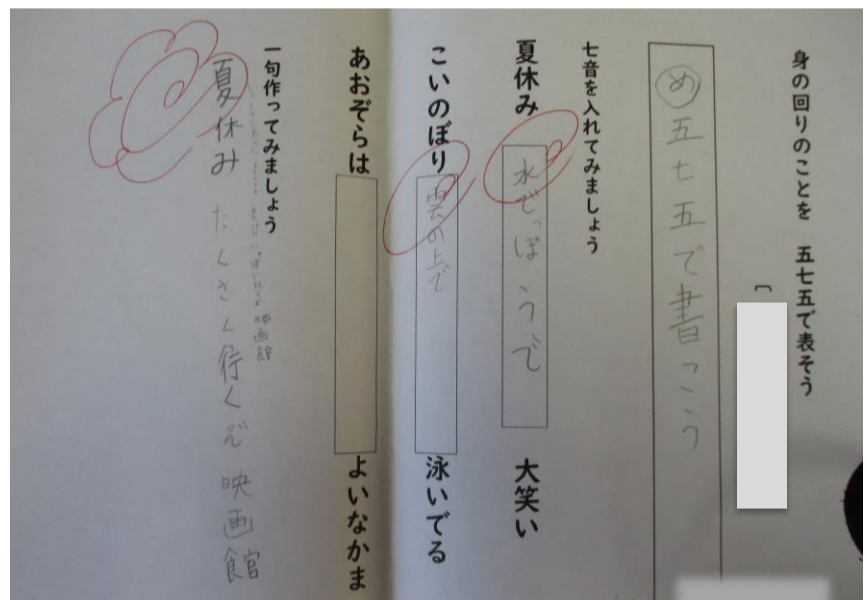 身の回りのことを 五七五で表そう
め 五七五で書こう
七音を入れてみましょう
夏休み 水でっぽうで 大笑い
こいのぼり 雲の上で 泳いでる
あおぞらは よいなかま
一句作ってみましょう
映画館
夏休み たくさん行くぞ 映画館